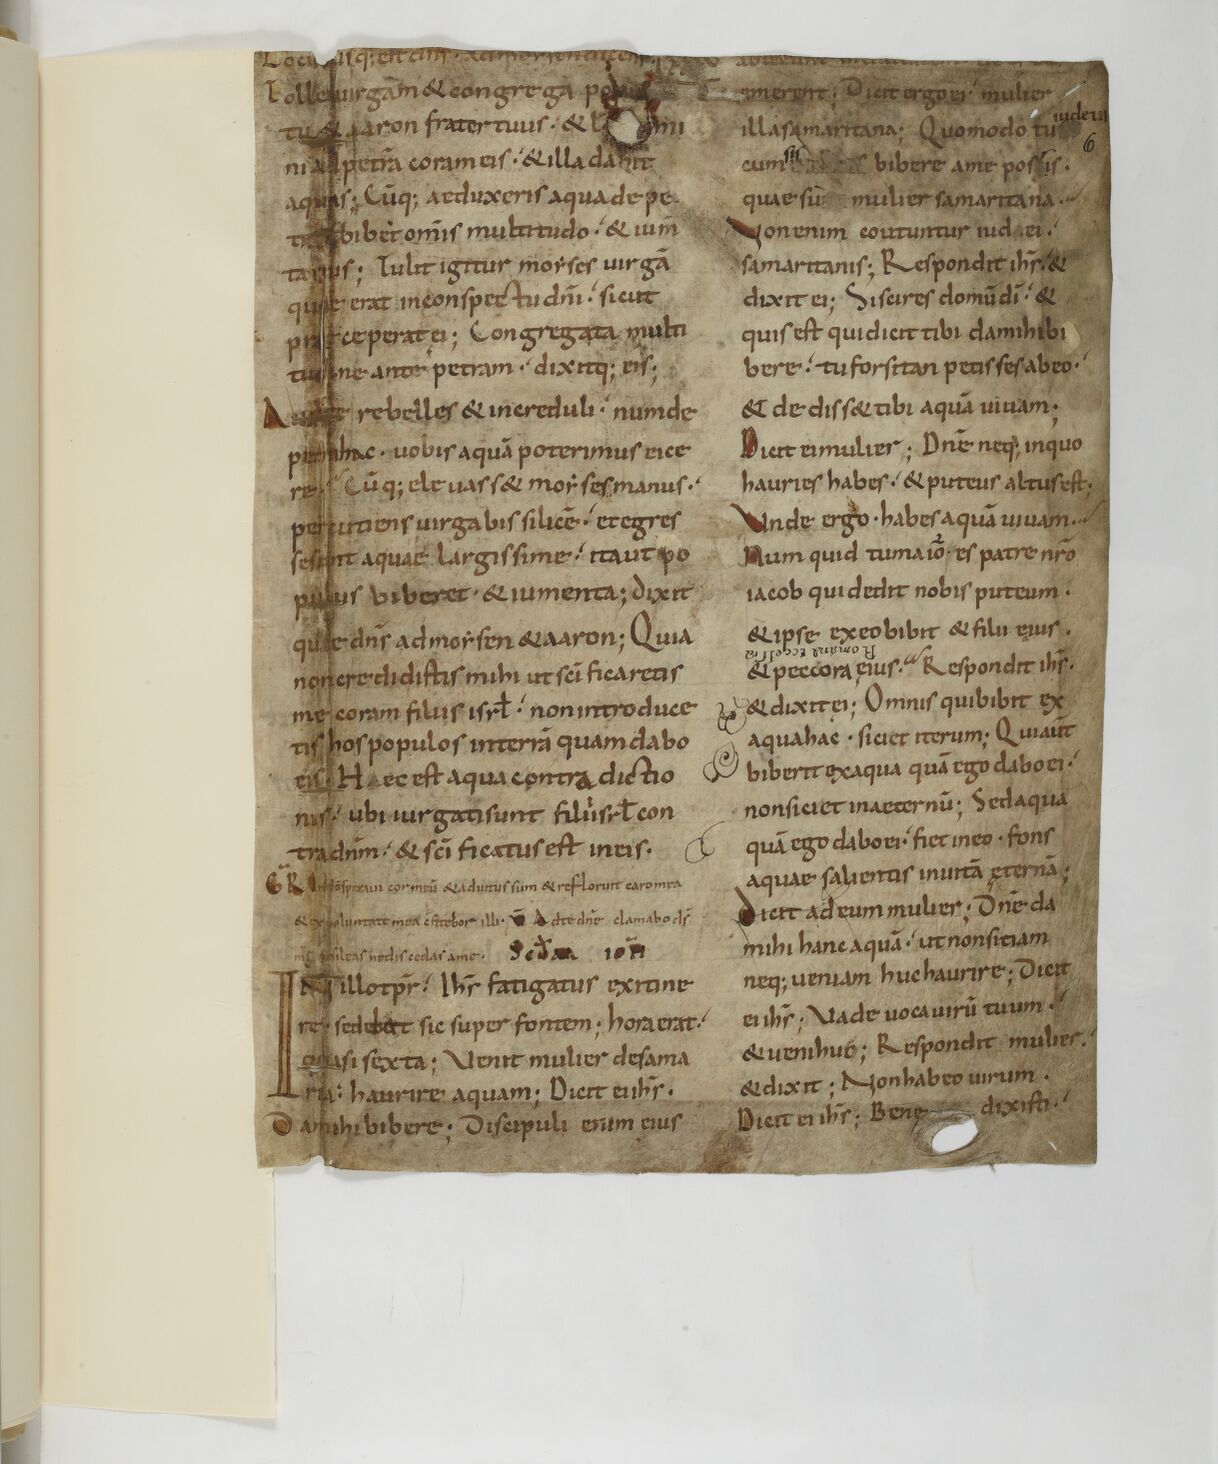 Tolle uirgam & congrega popu
tu & aaron frater tuus · & l mi
ni ad petrā coram eis · & illa dabit
aquas; Cūq; aeduxeris aqua de pe
tra bibet om̄is multitudo · & ium̄
ta eius; Tulit igitur moyses uirgā
quae erat inconspectu dn̄i · sicut
preceperat ei; Congregata multi
tudine ante petram · dixitq; eis;
Audite rebelles & increduli · num de
petra hac · uobis aquā poterimus eice
re · Cūq; eleuass& moyses manus ·
percutiens uirga bis silicē · et egres
se sunt aquae largissime · ita ut po
pulus biberet · & iumenta; dixit
que dn̄s ad moysen & aaron; Quia
non credidistis mihi ut sc̄ificaretis
me coram filiis isrł · non introduce
tis hos populos interrā quam dabo
eis · Haec est aqua contradictio
nis · ubi iurgati sunt filii isrł con
tra dn̄m · & sc̄ificatus est in eis ·
GR In dō sperauit cor meū & adiutus sum & refloruit caro mea
& ex uoluntate mea c̄fitebor illi · V Ad te dn̄e clamabo dś
ms̄ ne sileas ne discedas a me · Sc̄dm ioh̄
In illo tp̄r · Ih̄s fatigatus ex itine
re · sedebat sic super fontem; hora erat ·
quasi sexta; Uenit mulier de sama
ria · haurire aquam; Dicit ei ih̄s ·
Da mihi bibere; Discipuli enim eius
emerent; Dicit ergo ei mulier
illa samaritana; Quomodo tu iudeus
6
cum sis bibere a me possis ·
quae sū mulier samaritana ·
Non enim coutuntur iudaei ·
samaritanis; Respondit ih̄s · &
dixit ei; Si scires donū dī · &
quis est qui dicit tibi da mihi bi
bere · tu forsitan petisses ab eo ·
& dediss& tibi aquā uiuam;
Dicit ei mulier; Dn̄e neq; in quo
hauries habes · & puteus altus est;
Unde ergo · habes aquā uiuam ·
Numquid tu maior es patre nr̄o
iacob qui dedit nobis puteum ·
& ipse ex eo bibit & filii eius ·
Romana ecclesia
& peccora eius · Respondit ih̄s ·
& dixit ei; Omnis qui bibit ex
aqua hac · siciet iterum; Qui aut̄
biberit ex aqua quā ego dabo ei ·
non siciet in aeternū; Sed aqua
quā ego dabo ei · fiet in eo · fons
aquae salientis in uitā eternā;
Dicit ad eum mulier · Dn̄e da
mihi hanc aquā · ut non siciam
neq; ueniam huc haurire; Dicit
ei ih̄s; Uade uoca uirū tuum ·
& ueni huc; Respondit mulier ·
& dixit; Non habeo uirum ·
Dicit ei ih̄s; Bene dixisti ·